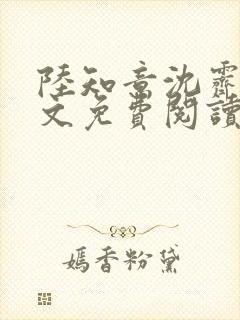 陸知章沈霽
文免費閱讀
嫣香粉黛